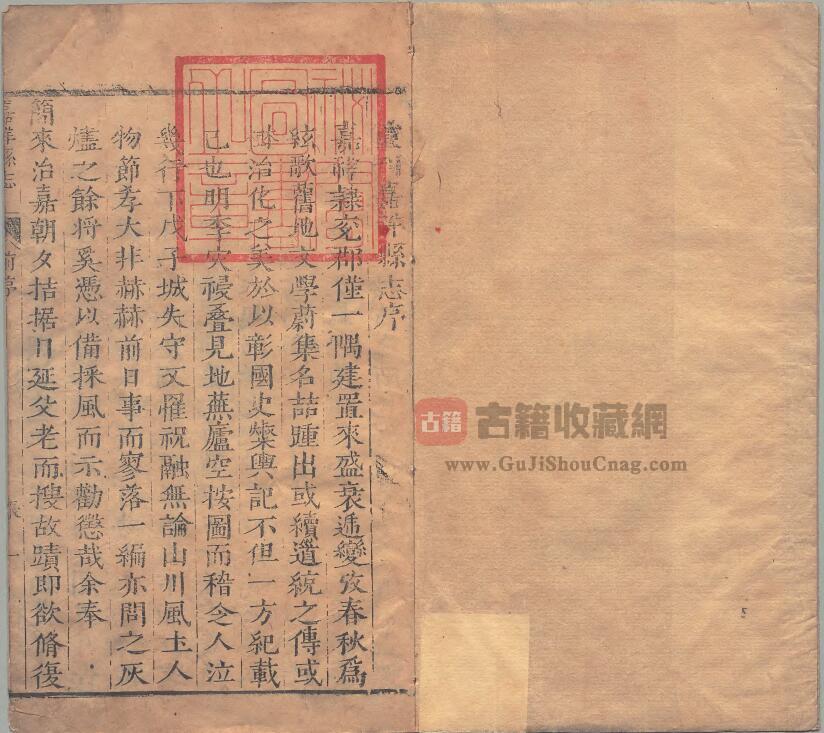 嘉祥縣志序
嘉祥隷兗郡僅一隅建置來盛衰逓變攷春秋爲
絃歌舊地文學蔚集名喆踵出或續道統之傳或
治化之美於以彰國史輿記不但一方紀載
已也明季灾祲疊見地蕪廬空按圖而稽令人泣
幾行下戊子城失守又罹祝融無論山川風圡人
物節孝大非赫赫前日事而寥落一編亦問之灰
燼之餘將奚憑以備採風而示勸懲哉余奉
簡來治嘉朝夕拮据日延父老而搜故蹟即欲脩復
嘉祥縣志 前序 一
古籍 古籍收藏網
www.GuJiShouCnag.com